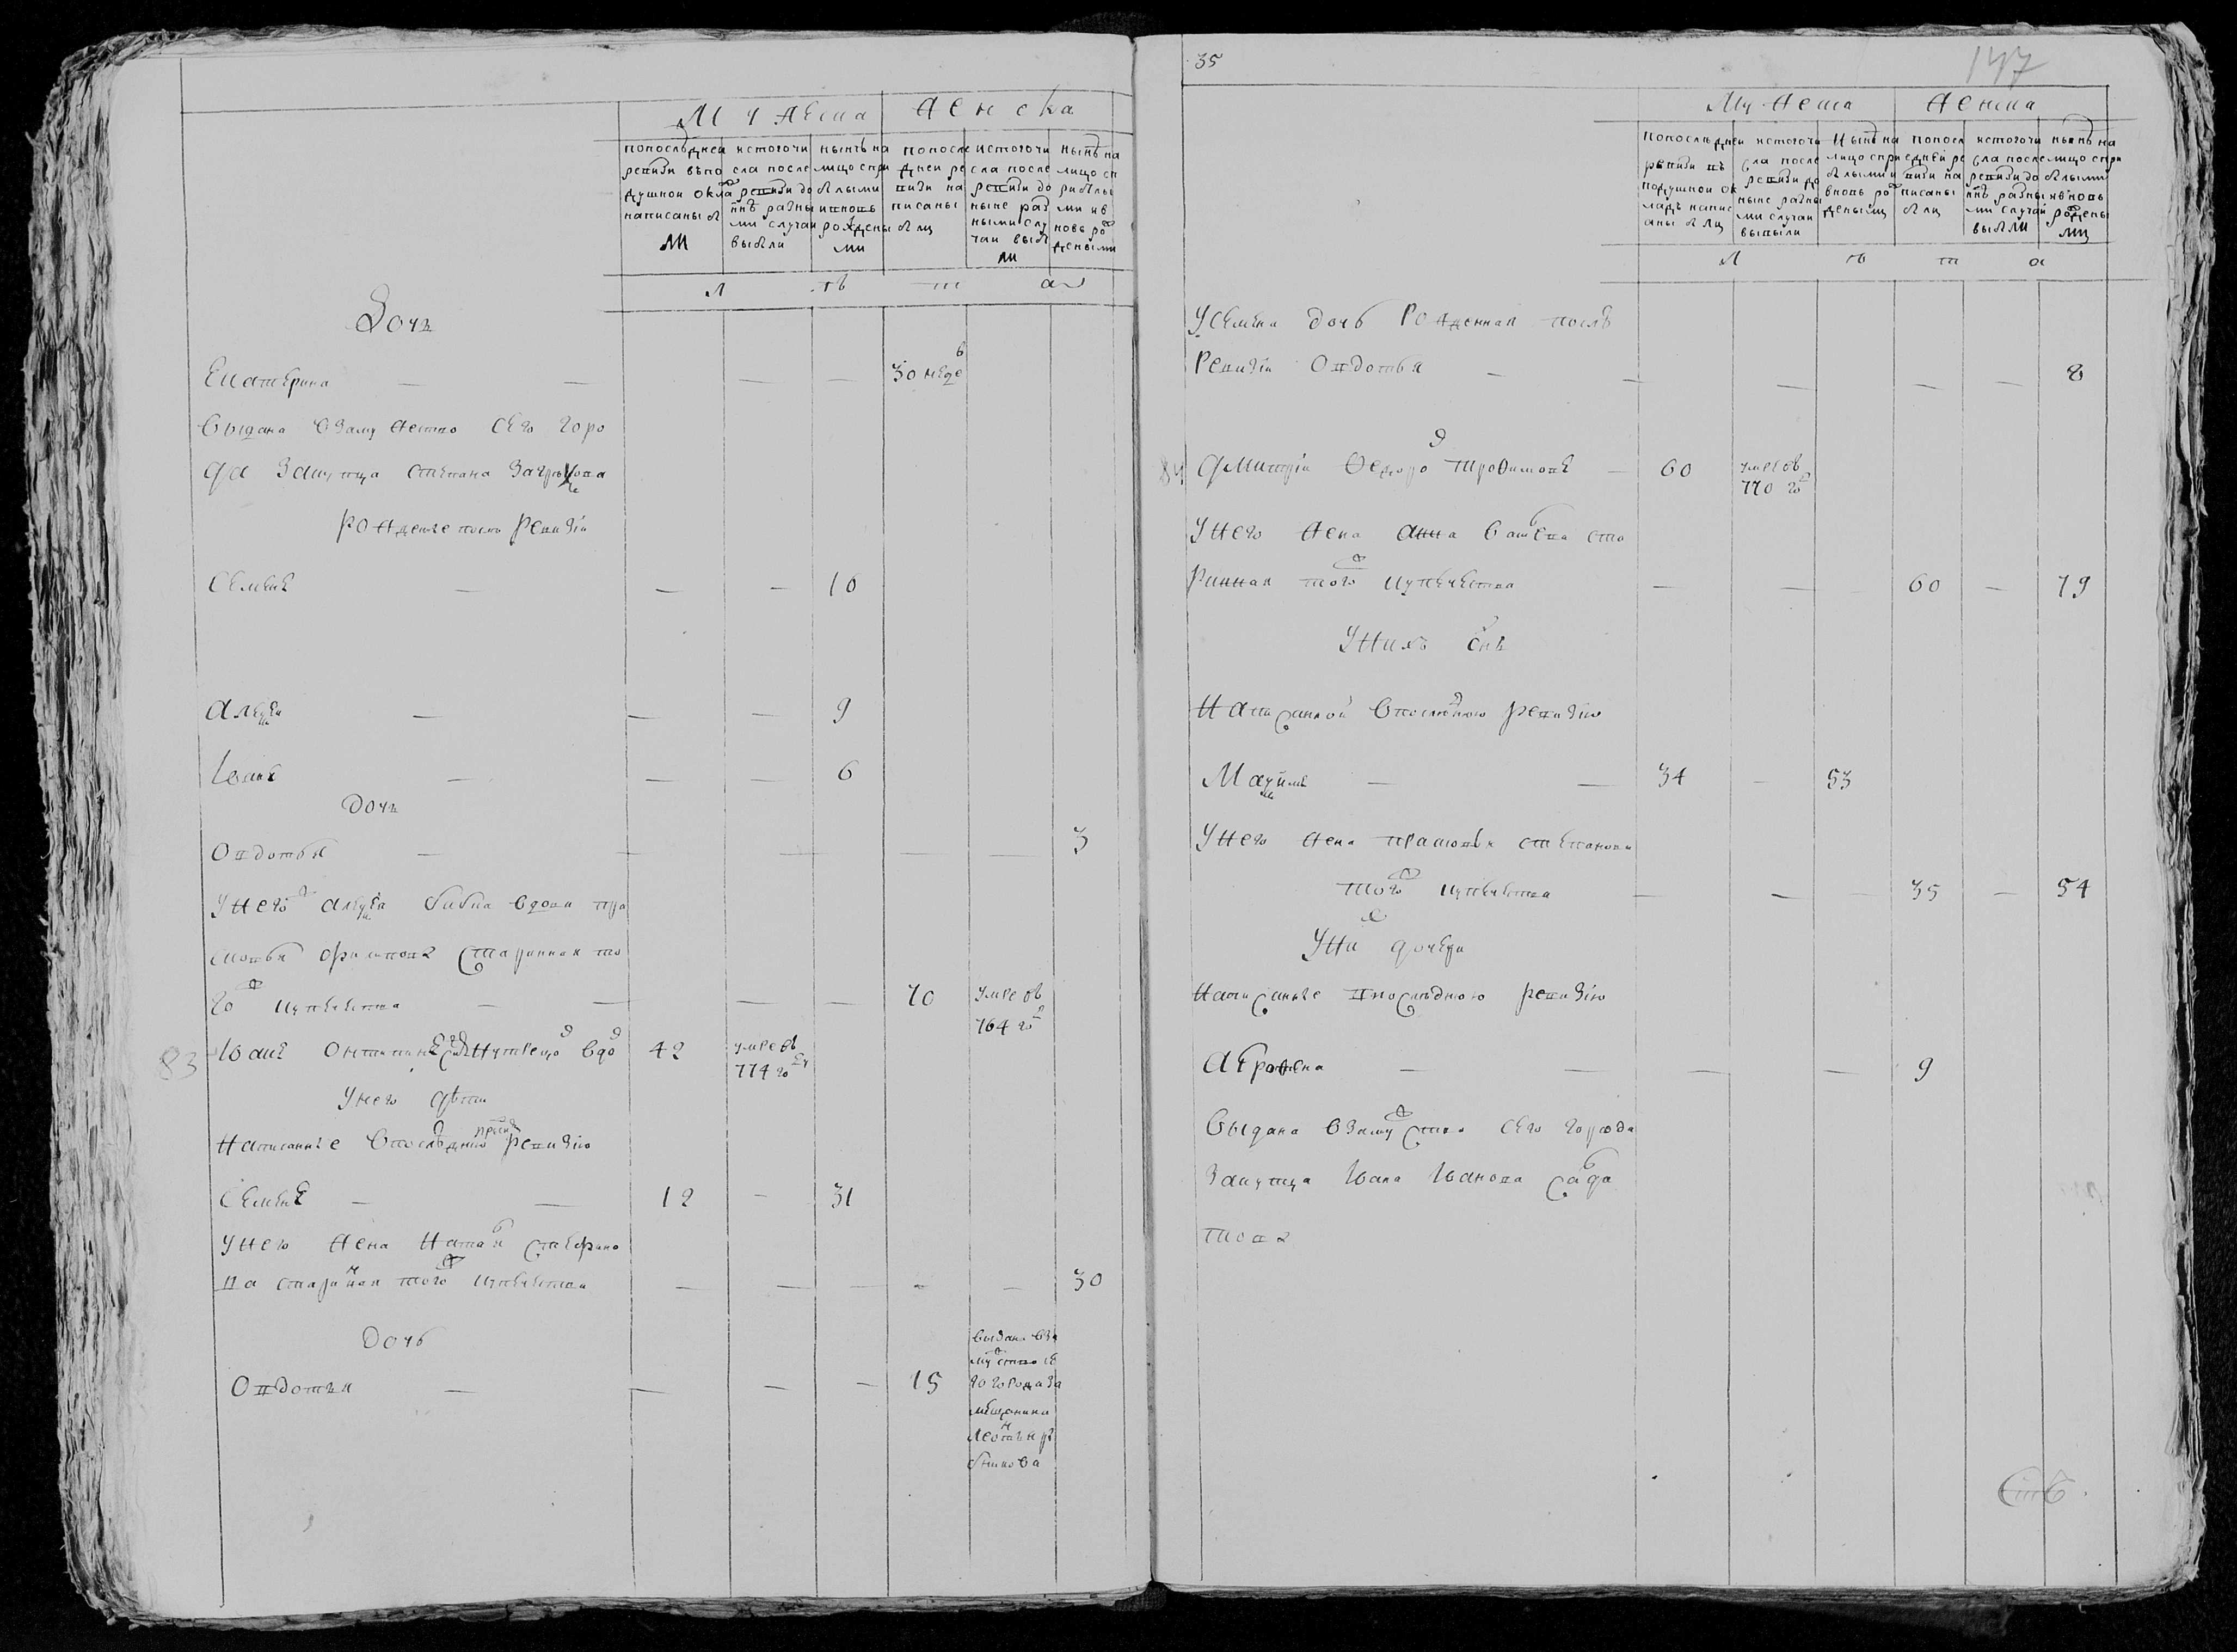 Мужеска
Женска
попоследнеи ревизи въподушнои окладъ написаны были
истого числа после ревизи до ннѣ разными случаи выбли
нынѣ на лицо сприбылыми ивновь рождеными
попоследнеи ревизи написаны бли
истого числа после ревизи до ныне разными случаи выбли
нынѣ на лицо сприблыми ивновь рождеными
л ѣ т а
Дочь
Екатерина — — — — 30 неде
выдана взамужество сего горо
да закупца степана
рожденые послѣ ревизіи
Семенъ — — — 16
Алеѯѣи — — — 9
Іванъ — — — 6
Дочь
Овдотья — — — — — 3
Унего Алеѯѣя бабка вдова пра
сковья филипова старинная то
го ж купечества — — — — 70 умре въ 764 го
83 Іванъ вдо 42 умре въ 774 го
Унего дѣти
Написанные впоследнюю ревизию
Семенъ — — 12 — 31
Унего жена Наталя стефано
ва старинная того ж купечества — — — — — 30
Дочь
Овдотья — — — — 15 выдана вза
муж ство се
го города за
мещанина
35
147
Мужеска
Женска
попоследнеи ревизи въ подушнои окладъ написаны бли
истого числа после ревизи до ныне разными случаи выбыли
Нынѣ на лицо сприблыми и вновь рожденыи
попоследнеи ревизи написаны бли
истого числа после ревизи до ннѣ разными случаи выбли
нынѣ на лицо сприблыми ивновь рождены
л ѣ т а
Усемена дочь рожденная послѣ
Ревизіи Овдотья — — — — — 8
84 Дмитріи Ѳедоро Троѳимовъ — 60 умре въ 770 го
Унего жена анна сто
ринная того ж купечества — — — 60 — 79
Унихъ снъ
Написаннои впоследнюю ревизию
Маѯимъ — — 34 — 53
Унего жена прасковья степанова
того ж купечества — — — 35 — 54
Уних дочери
Написанные впоследнюю ревизію
Аѳросенья — — — — 9
Выдана взамуж ство сего города
Закупца Івана Іванова сада
това